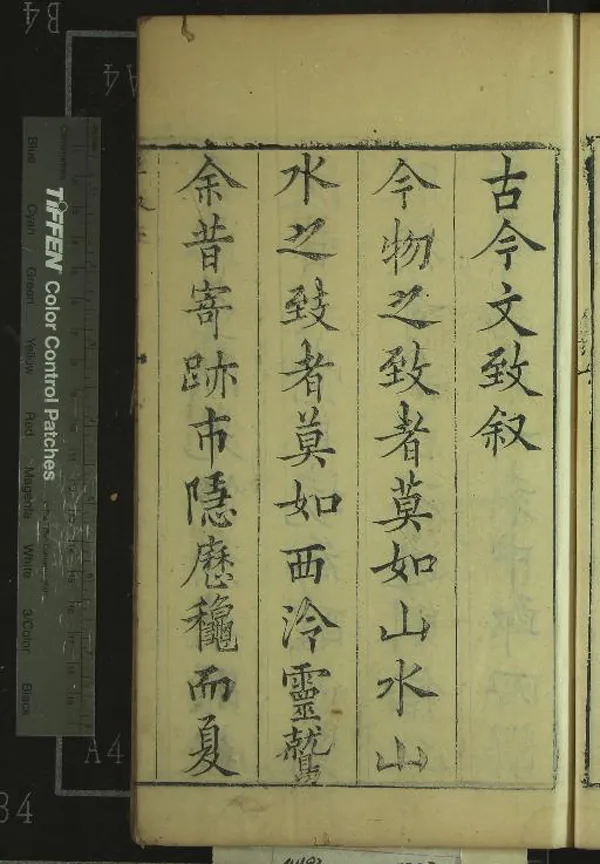 古今文致叙
今物之致者莫如山水山
水之致者莫如西泠靈鷲
余昔寄跡市隱歷龝而夏
TIFFEN Color Control Patches
Blue Cyan Green Yellow Red Magenta White 3/Color Black
B4
A4
A4
B4